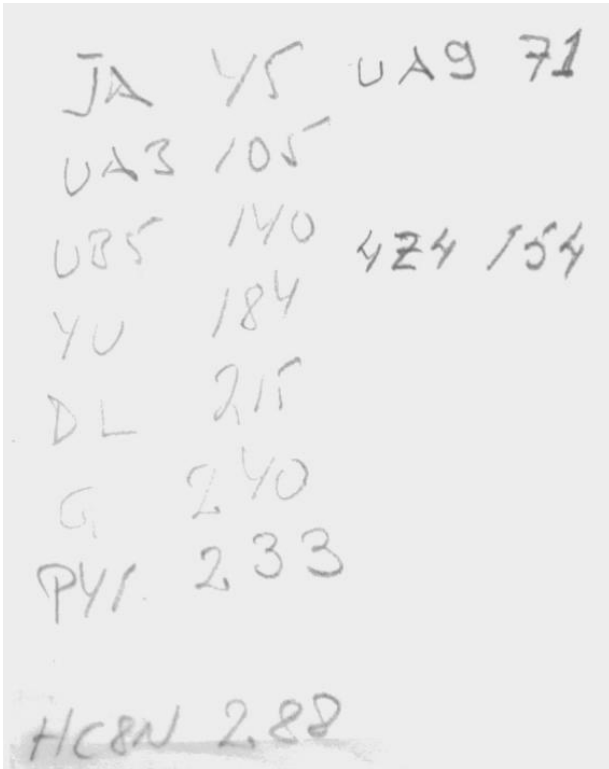 JA 45 UA9 71
UA3 105
UB5 140 4Z4 154
YU 184
DL 215
G 240
PY1 233
HC8N 288